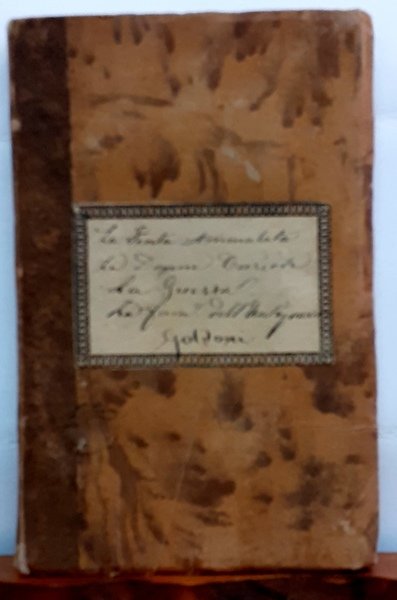 La Finta Ammalata
Le Donne Curiose
La Guerra
La Fam.a dell'Antiquario
Goldoni